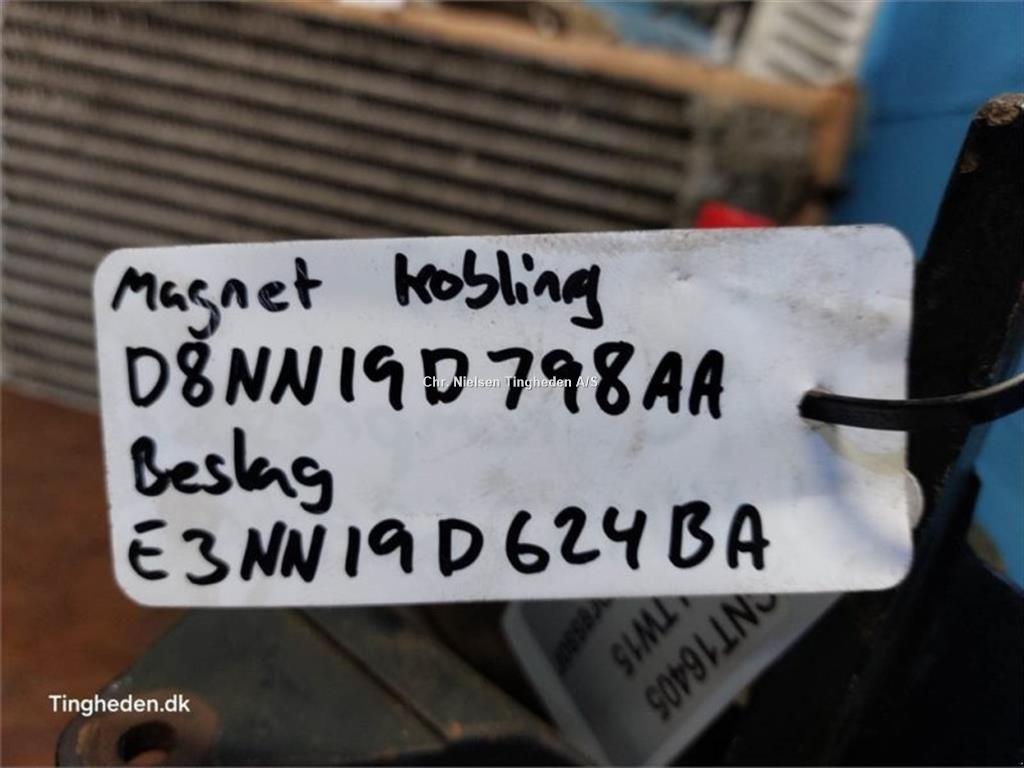 Magnet kobling
D8NN19D798AA
Chr. Nielsen Tingheden A/S
Beslag
E3NN19D624BA
CNT16405
TW15
Tingheden.dk